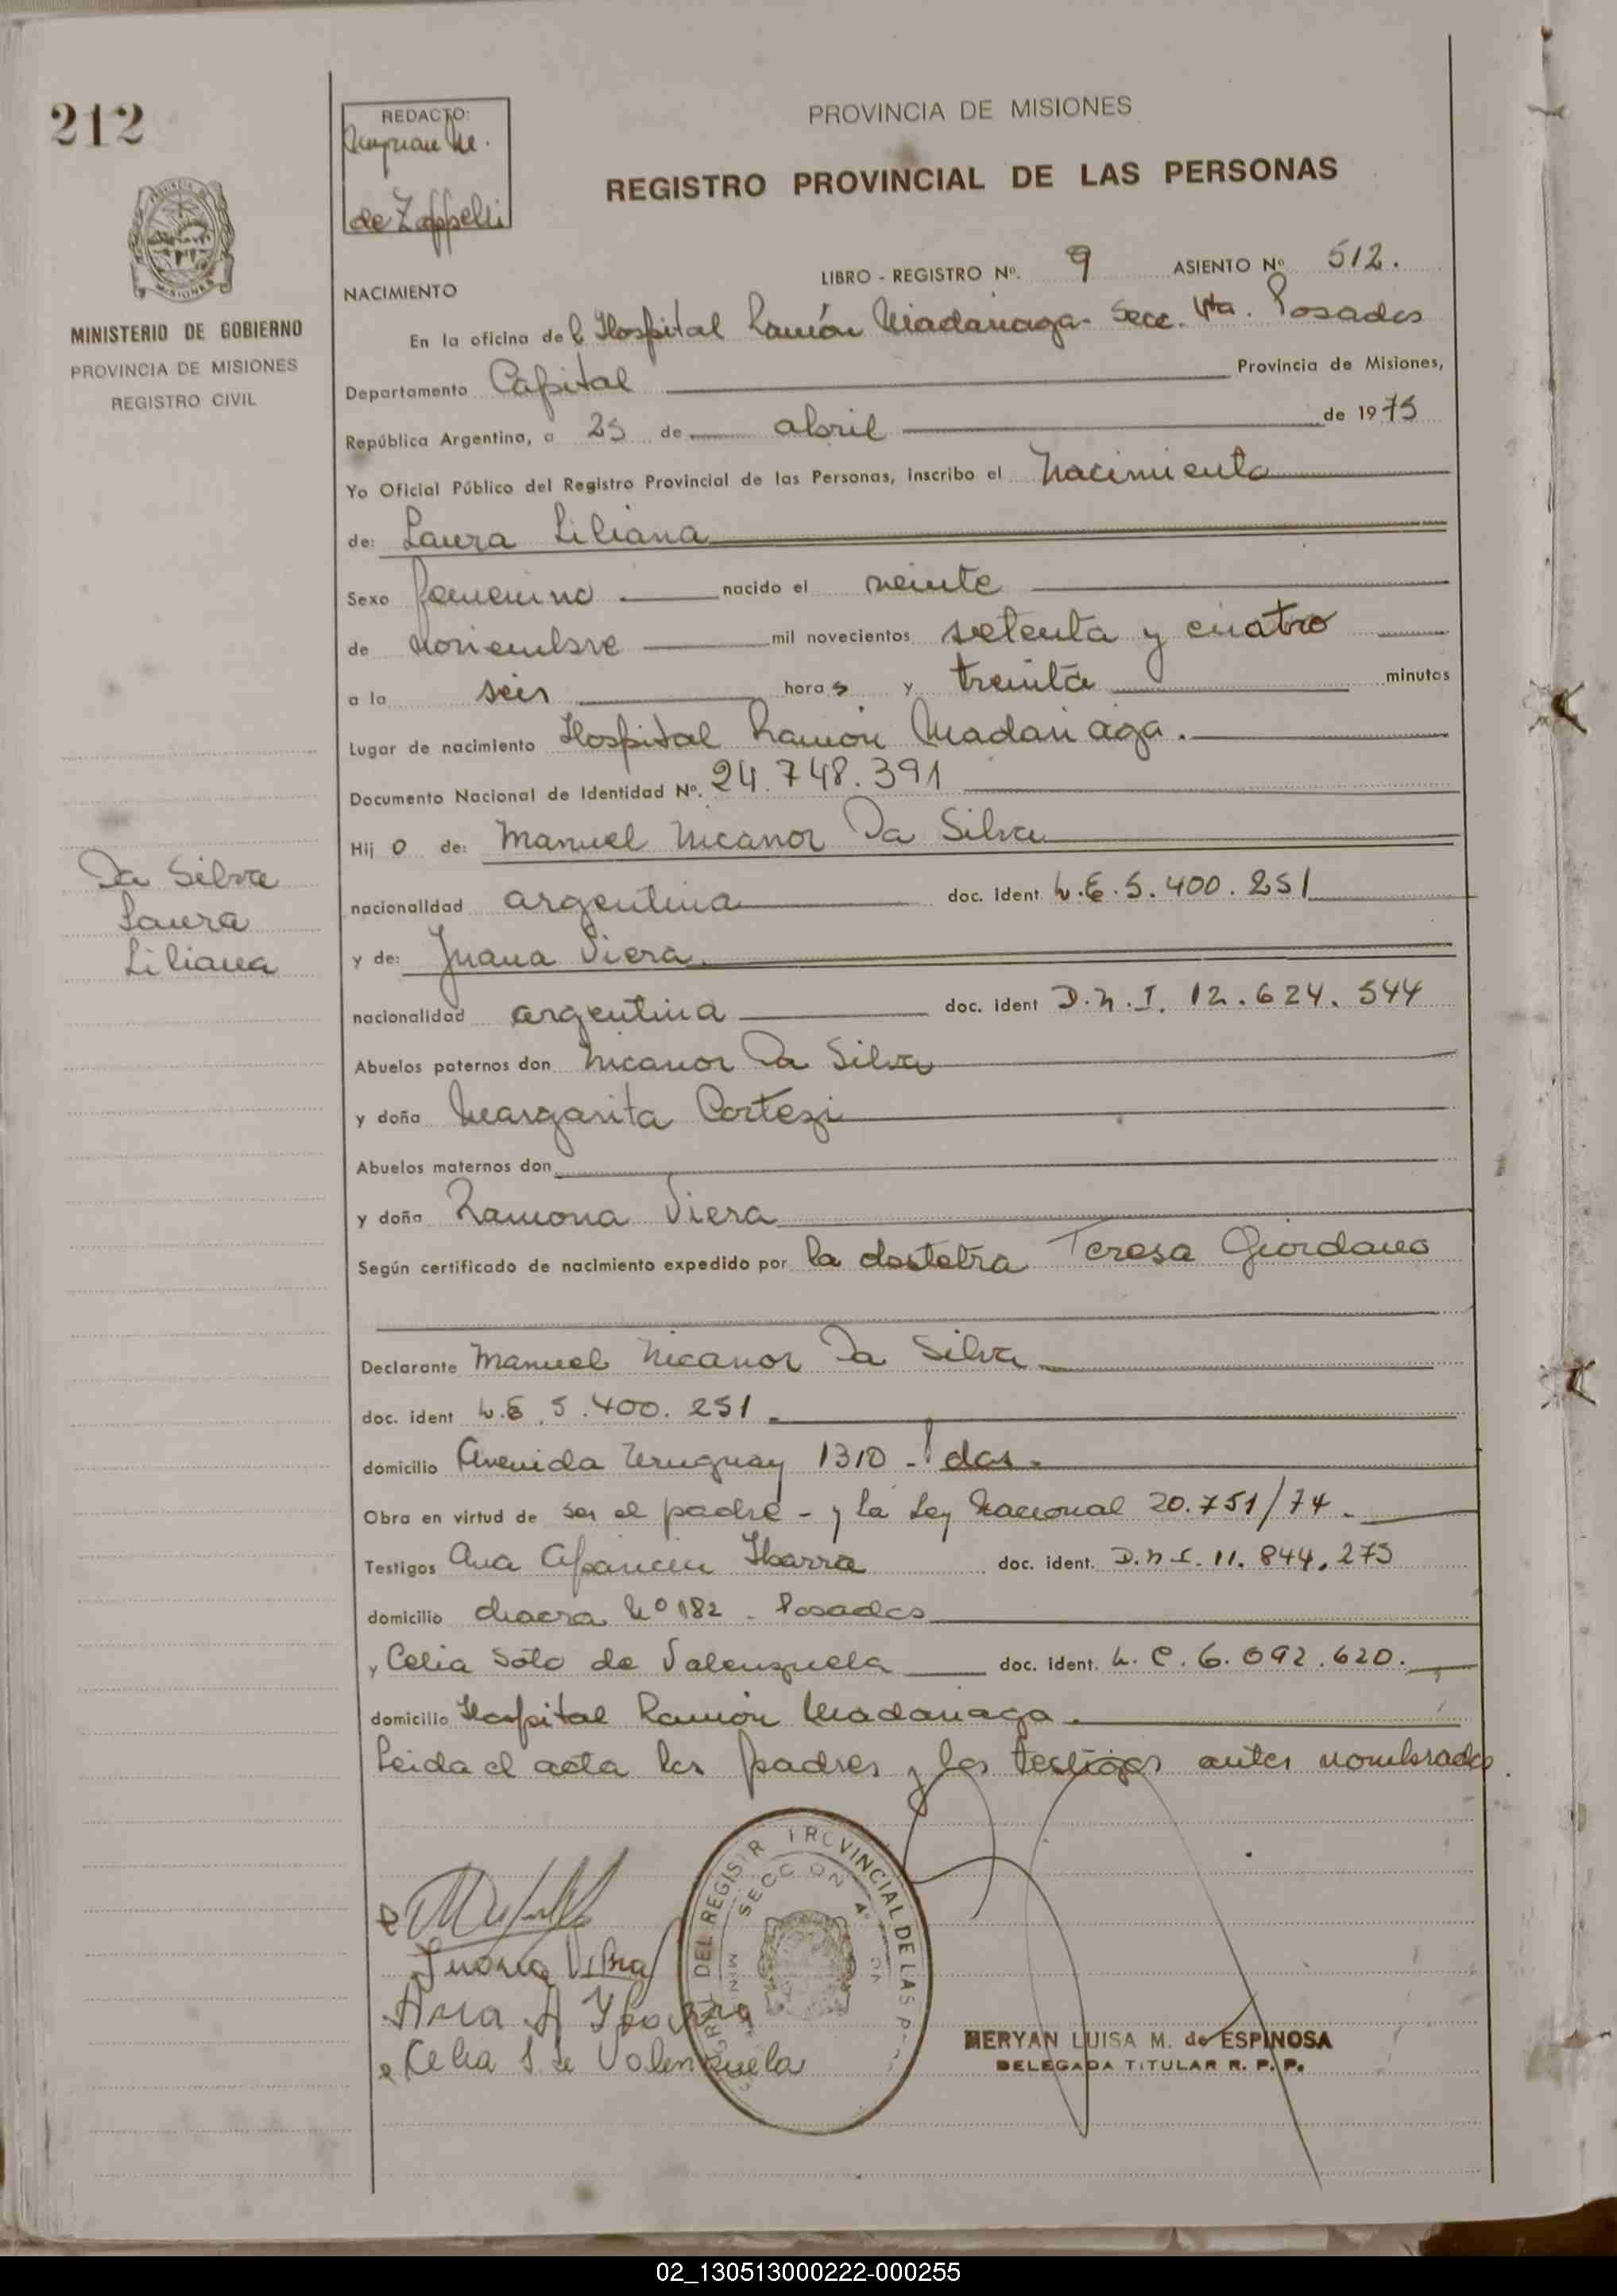 212
REDACTO:
de Zoppelli
PROVINCIA DE MISIONES
REGISTRO PROVINCIAL DE LAS PERSONAS
LIBRO - REGISTRO Nº. 9 ASIENTO Nº 512.
MISIONES
MINISTERIO DE GOBIERNO
PROVINCIA DE MISIONES
REGISTRO CIVIL
NACIMIENTO
En la oficina del Hospital Ramón Madariaga - Secc. 4ta. Posadas
Departamento Capital Provincia de Misiones,
República Argentina, a 25 de abril de 1975
Yo Oficial Público del Registro Provincial de las Personas, inscribo el Nacimiento
de: Laura Liliana
Sexo femenino nacido el veinte
de noviembre mil novecientos setenta y cuatro
a la seis horas y treinta minutos
Lugar de nacimiento Hospital Ramón Madariaga.
Documento Nacional de Identidad Nº. 24.748.391
Hijo de: Manuel Nicanor Da Silva
Da Silva
Laura
Liliana
nacionalidad argentina doc. ident L.E. 5.400.251
y de: Juana Viera.
nacionalidad argentina doc. ident D.N.I. 12.624.544
Abuelos paternos don Nicanor Da Silva
y doña Margarita Cortezi
Abuelos maternos don
y doña Ramona Viera
Según certificado de nacimiento expedido por la Teresa Giordano
Declarante Manuel Nicanor Da Silva
doc. ident L.E. 5.400.251
domicilio Avenida Uruguay 1310 - Pdas.
Obra en virtud de ser el padre - y la Ley Nacional 20.751/74.
Testigos Ana Ibarra doc. ident. D.N.I. 11.844.275
domicilio chacra Nº 182 - Posadas
y Celia Soto de Valenzuela doc. ident. L.C. 6.092.620.
domicilio Hospital Ramón Madariaga.
Leida el acta los padres y los testigos antes nombrados.
Juana Viera
Ana A Ybarra
Celia S de Valenzuela
DEL REGISTR PROVINCIAL DE LAS P
SECCION 4ª
MERYAN LUISA M. de ESPINOSA
DELEGADA TITULAR R. P. P.
02_130513000222-000255